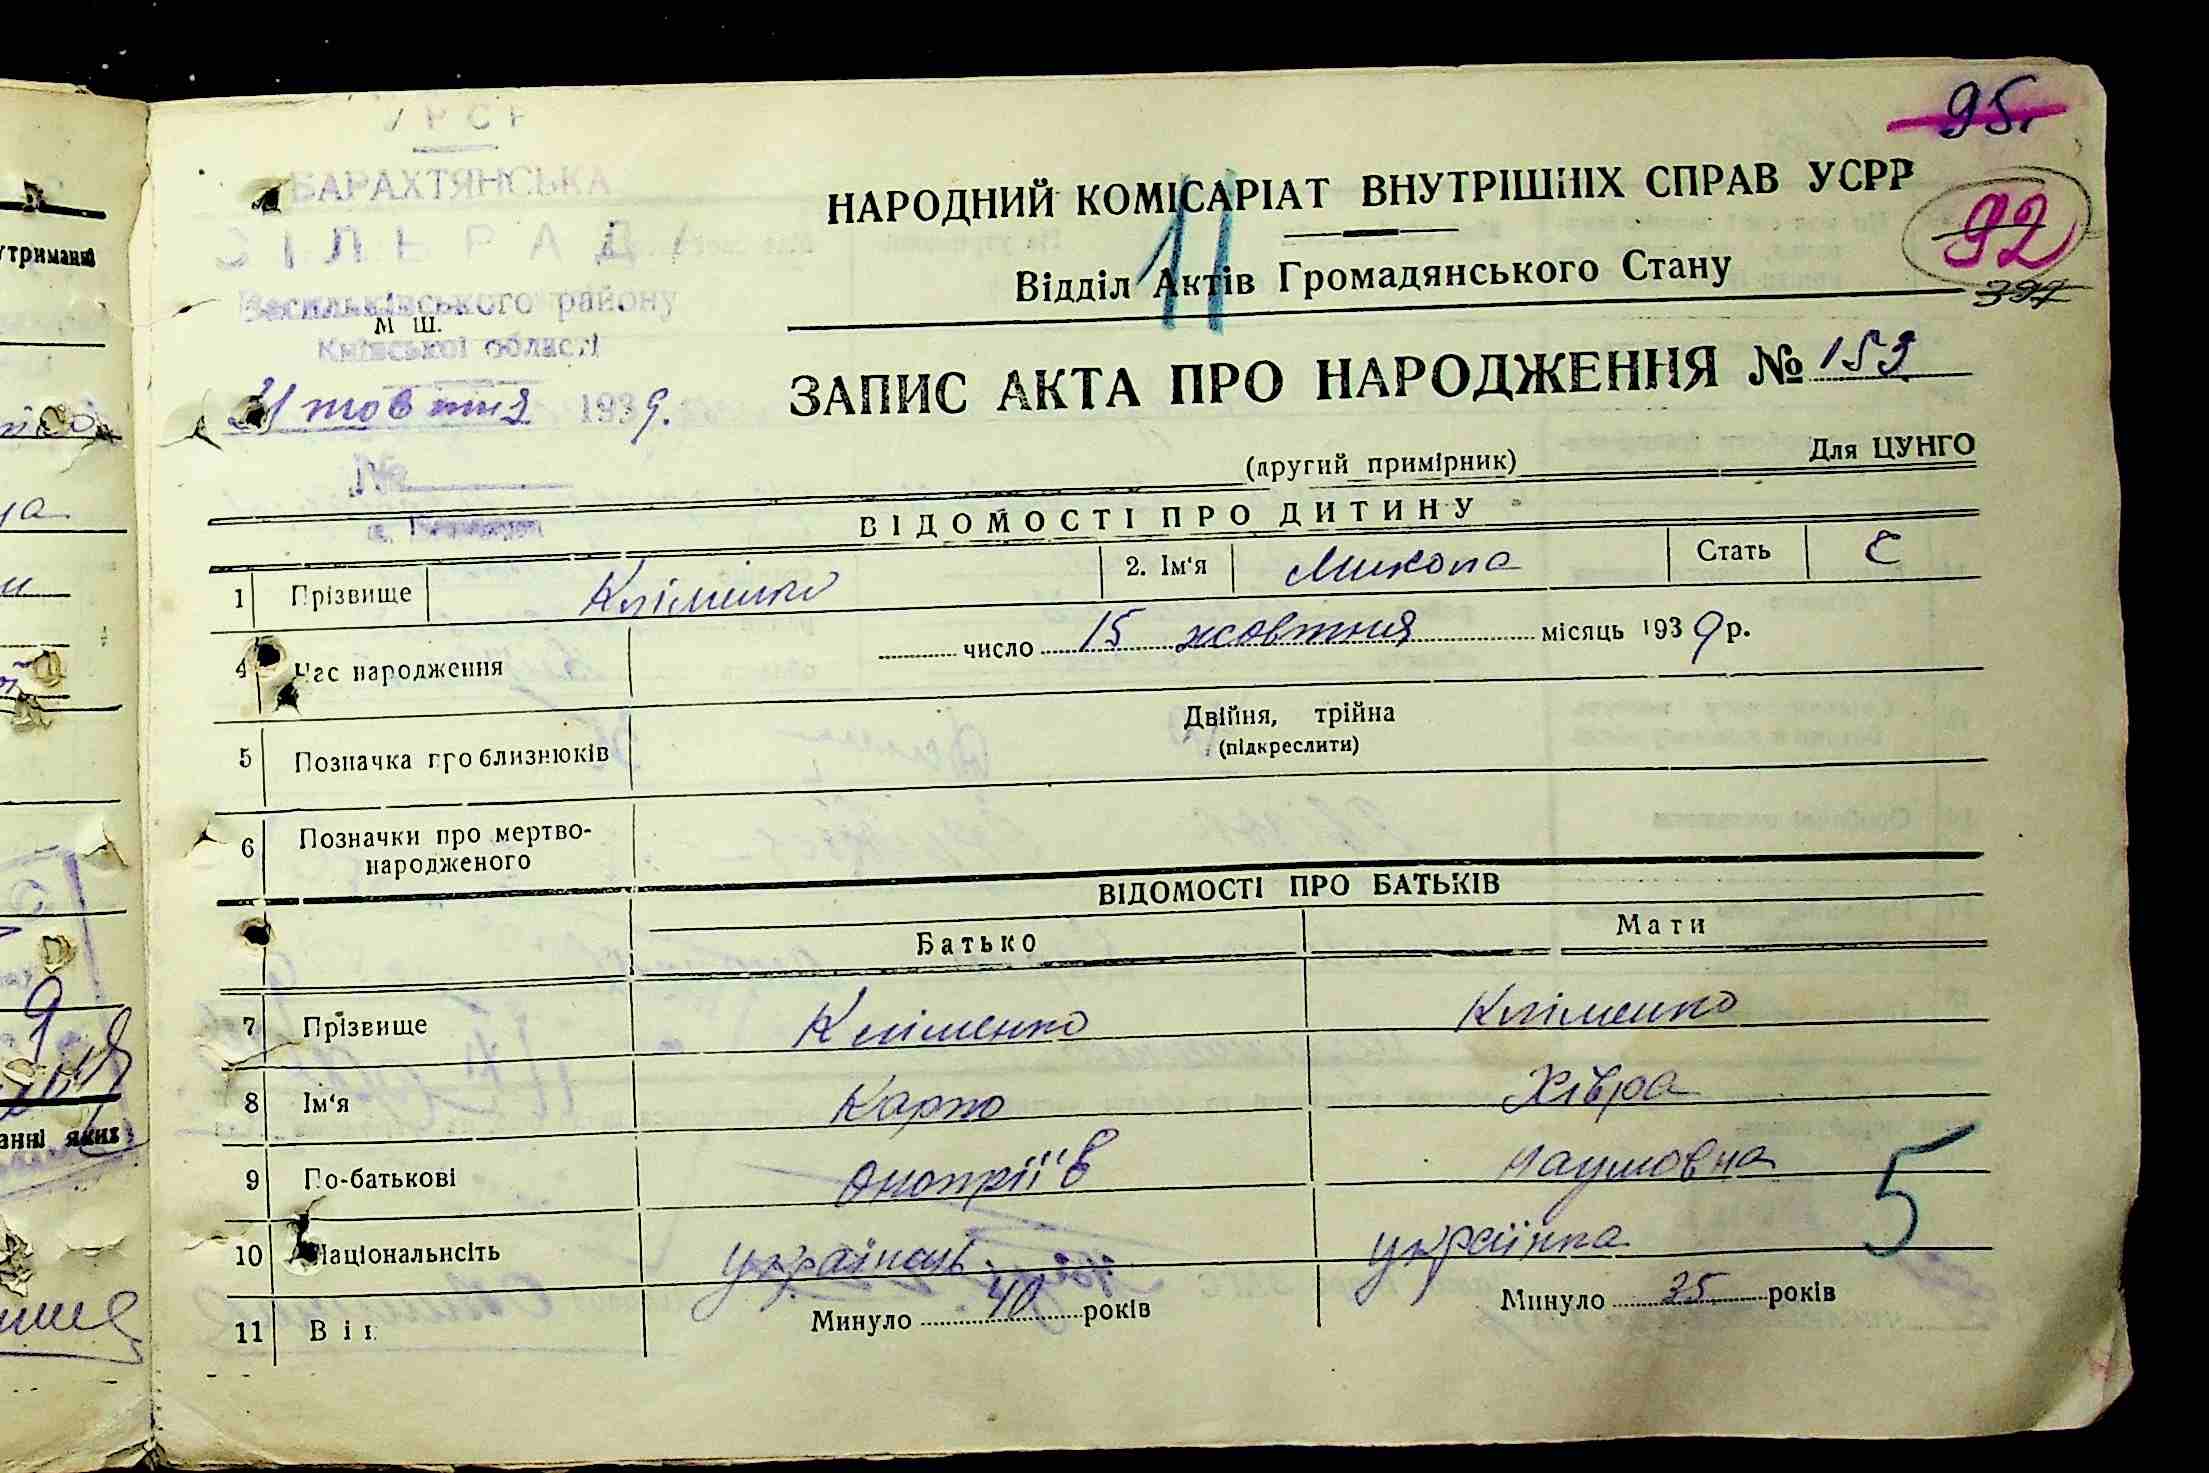 УРСР
БАРАХТЯНСЬКА
СІЛЬРАДА
Васильківського району
М Ш.
Київської області
31 жовтня 1939.
№
95
92
397
11
НАРОДНИЙ КОМІСАРІАТ ВНУТРІШНІХ СПРАВ УСРР
Відділ Актів Громадянського Стану
ЗАПИС АКТА ПРО НАРОДЖЕННЯ № 159
(другий примірник) Для ЦУНГО
ВІДОМОСТІ ПРО ДИТИНУ
1 Прізвище Кліменко 2. Ім'я Микола Стать Ч
4 Час народження число 15 жовтня місяць 1939 р.
5 Позначка про близнюків Двійня, трійна
(підкреслити)
6 Позначки про мертво-
народженого
ВІДОМОСТІ ПРО БАТЬКІВ
Батько Мати
7 Прізвище Кліменко Кліменко
8 Ім'я Карпо Хівра
9 По-батькові Онопріїв Наумовна
10 Національнсіть українець українка
5
11 Вік Минуло 40 років Минуло 35 років